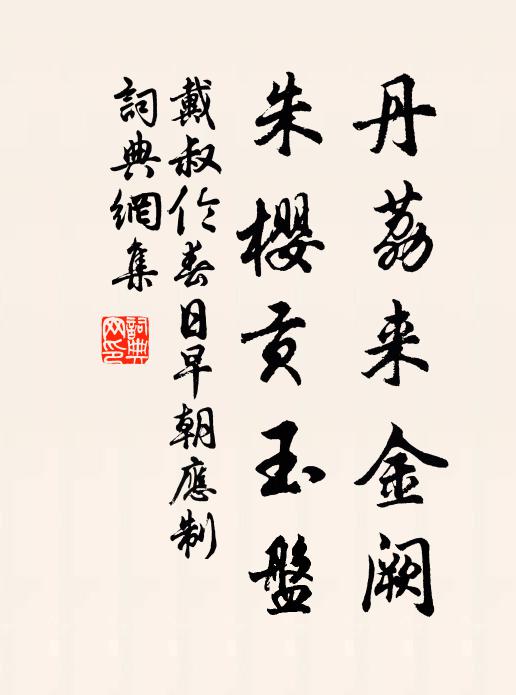 丹荔来金阙
朱櫻贡玉盤
戴叔伦春日早朝應制
詞典網集
詞典网印